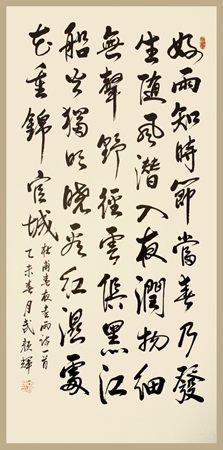 好雨知時節當春乃發
生随風潜入夜潤物細
無聲野徑雲俱黑江
船火獨明曉看紅濕處
花重錦官城
杜甫春夜喜雨詩一首
乙未春月武輝